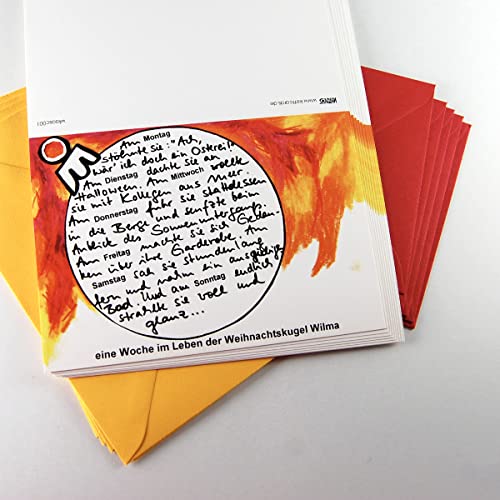 Am Montag
stöhnte sie: "Ach,
wär' ich doch ein Osterei!"
Am Dienstag dachte sie an
Halloween. Am Mittwoch wollte
sie mit Kollegen ans Meer.
Am Donnerstag fuhr sie stattdessen
in die Berge und seufzte beim
Anblick des Sonnenuntergangs.
Am Freitag machte sie sich Gedan-
ken über ihre Garderobe. Am
Samstag sah sie stundenlang
fern und nahm ein ausgiebiges
Bad. Und am Sonntag endlich
strahlte sie voll und
glanz...
eine Woche im Leben der Weihnachtskugel Wilma